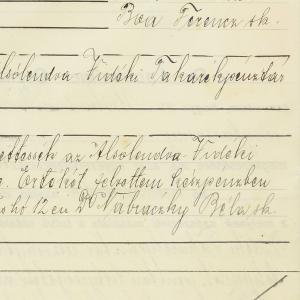 Bea Ferencz sk.
Alsólendva Vidéki Takarékpénztár
az Alsólendva Vidéki
Értékét felvettem készpénzben
hó 12 én Dr Nabraczky Béla sk.